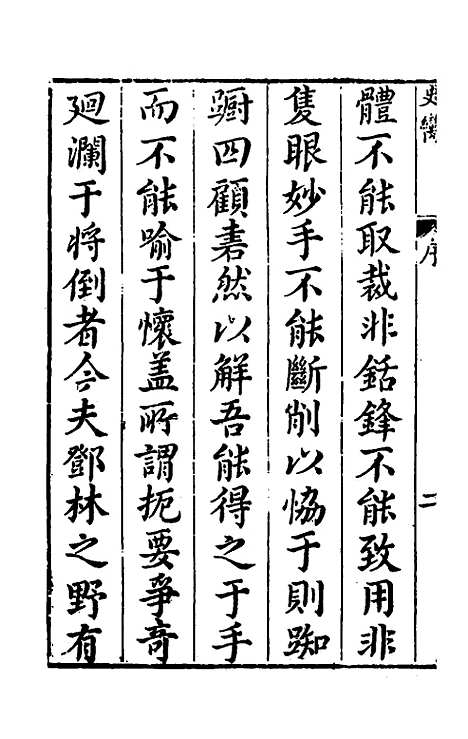 體不能取裁非銛鋒不能致用非
隻眼妙手不能斷削以恊于則踟
蹰四顧砉然以解吾能得之于手
而不能喻于懷盖所謂扼要爭奇
廻瀾于將倒者今夫鄧林之野有
史臠
序
二